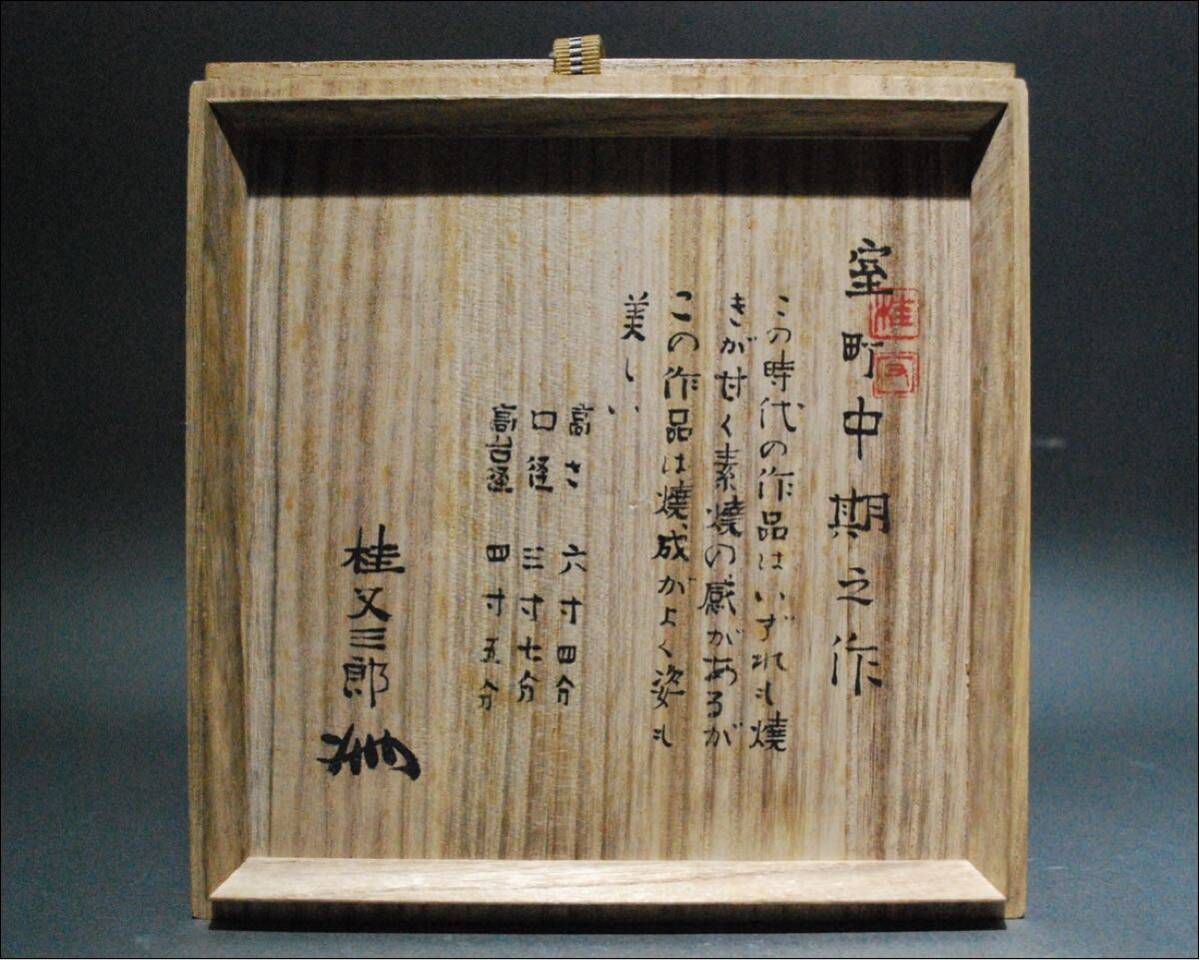 室町中期之作
この時代の作品はいずれも燒
きが甘く素燒の感があるが
この作品は燒成がよく姿も
美しい
高さ 六寸四分
口径 三寸七分
高台径 四寸五分
桂又三郎
桂